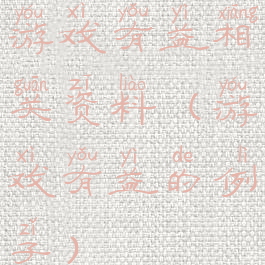 yóu xì yǒu yì xiāng
游戏有益相
guān zī liào yóu
关资料(游
xì yǒu yì de lì
戏有益的例
zǐ
子)